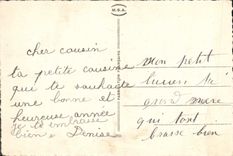 M.S.A.
cher cousin
ta petite cousine
qui te souhaite
une bonne et
heureuse année
je t'embrasse
bien. Denise
mon petit
lucien ta
grand mere
qui tont
brasse bien